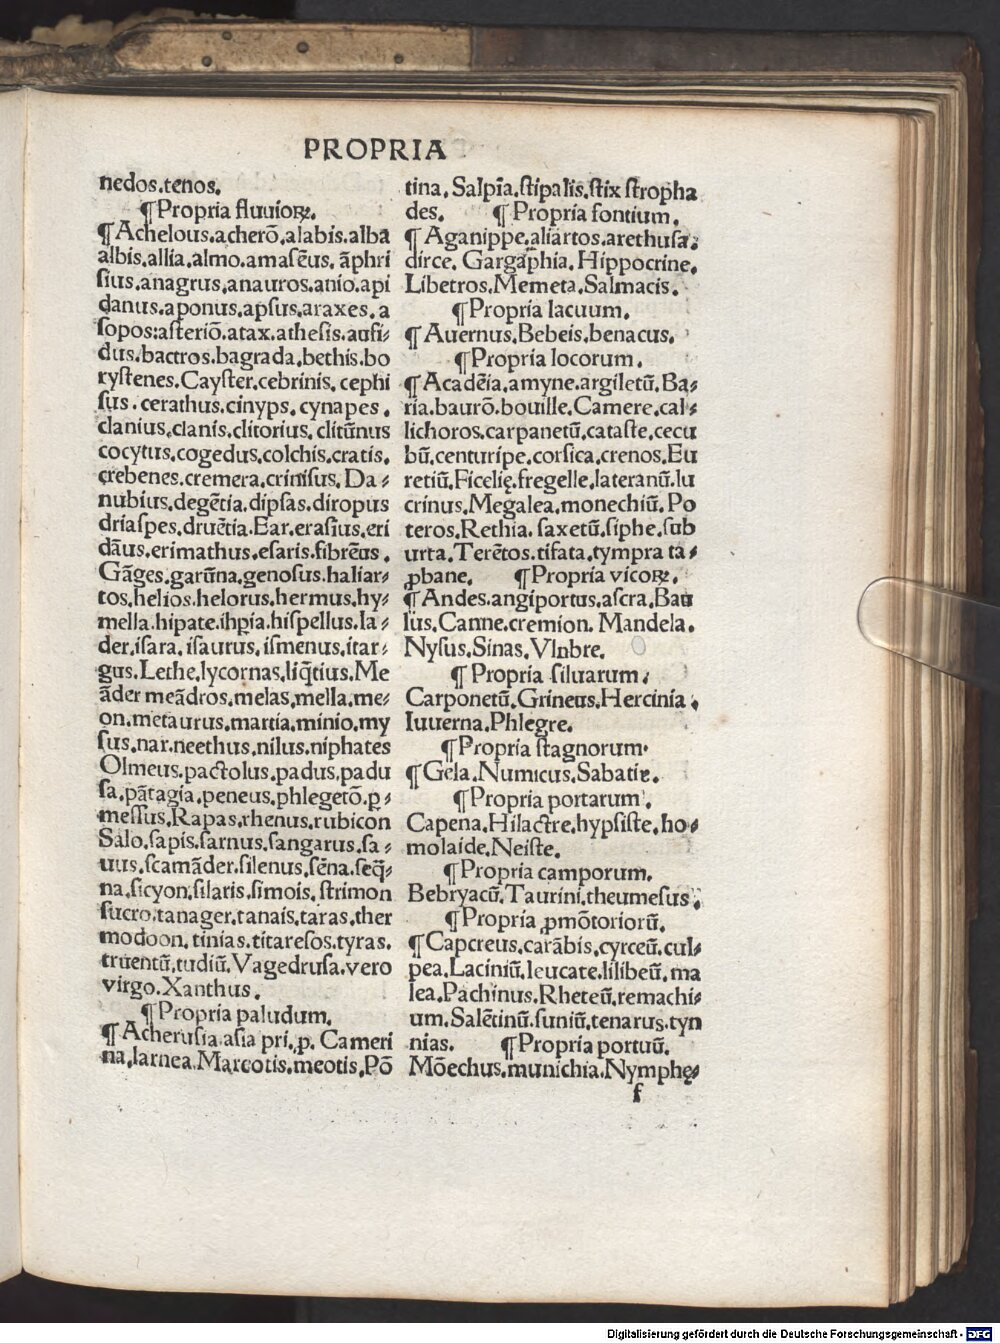 PROPRIA
nedos.tenos.
¶Propria fluuioꝝ.
¶Achelous.acherõ.alabis.alba
albis.allia.almo.amasẽus. ãphri
sius.anagrus.anauros.anio.api
danus.aponus.apsus.araxes. a
sopos:asteriõ.atax.athesis.aufi⸗
dus.bactros.bagrada.bethis.bo
rystenes.Cayster.cebrinis. cephi
sus. cerathus.cinyps. cynapes .
clanius.clanis.clitorius. clitũnus
cocytus.cogedus.colchis.cratis.
crebenes.cremera.crinisus. Da⸗
nubius.degẽtia.dipsas.diropus
driaspes.druẽtia.Ear.erasius.eri
dãus.erimathus.esaris.fibrẽus.
Gãges.garũna.genosus.haliar⸗
tos.helios.helorus.hermus.hy⸗
mella.hipate.ihpia.hispellus.la⸗
der.isara. isaurus. ismenus.itar⸗
gus.Lethe.lycornas.liq̃tius.Me
ãder meãdros.melas.mella.me⸗
on.metaurus.martia.minio.my
sus.nar.neethus.nilus.niphates
Olmeus.pactolus.padus.padu
sa.pãtagia.peneus.phlegetõ.ꝑ⸗
messus.Rapas.rhenus.rubicon
Salo.sapis.sarnus.sangarus.sa⸗
uus.scamãder.silenus.sẽna.seq̃⸗
na.sicyon.silaris.simois. strimon
sucro.tanager.tanais.taras.ther
modoon. tinias.titaresos.tyras.
truentũ.tudiũ.Vagedrusa.vero
virgo.Xanthus.
¶Propria paludum.
¶Acherusia.asia pri.ꝓ. Cameri
na.larnea.Mareotis.meotis.Põ
tina. Salpĩa.stipalis.stix stropha
des. ¶Propria fontium.
¶Aganippe.aliartos.arethusa.
dirce. Gargaphia.Hippocrine.
Libetros.Memeta.Salmacis.
¶Propria lacuum.
¶Auernus.Bebeis.benacus.
¶Propria locorum.
¶Acadẽia.amyne.argiletũ. Ba⸗
ria.baurõ.bouille.Camere.cal⸗
lichoros.carpanetũ.cataste.cecu
bũ.centuripe.corsica.crenos.Eu
retiũ.Ficelię.fregelle.lateranũ.lu
crinus.Megalea.monechiũ.Po
teros.Rethia. saxetũ.siphe.sub
urta.Terẽtos.tifata.tympra ta⸗
ꝓbane. ¶Propria vicoꝝ.
¶Andes.angiportus.ascra.Bau
lius.Canne.cremion. Mandela.
Nysus.Sinas.Vlnbre.
¶Propria siluarum.
Carponetũ.Grineus.Hercinia.
Iuuerna.Phlegre.
¶Propria stagnorum.
¶Gela.Numicus.Sabatie.
¶Propria portarum.
Capena.Hilactre.hypsiste.ho⸗
molaide.Neiste.
¶Propria camporum.
Bebryacũ.Taurini.theumesus.
¶Propria ꝓmõtoriorũ.
¶Capcreus.carãbis.cyrceũ.cul⸗
pea.Laciniũ.leucate.lilibeũ. ma
lea.Pachinus.Rheteũ.remachi⸗
um.Salẽtinũ.suniũ.tenarus.tyn
nias. ¶Propria portuũ.
Mõechus.munichia.Nymphę⸗
f
Digitalisierung gefördert durch die Deutsche Forschungsgemeinschaft - DFG